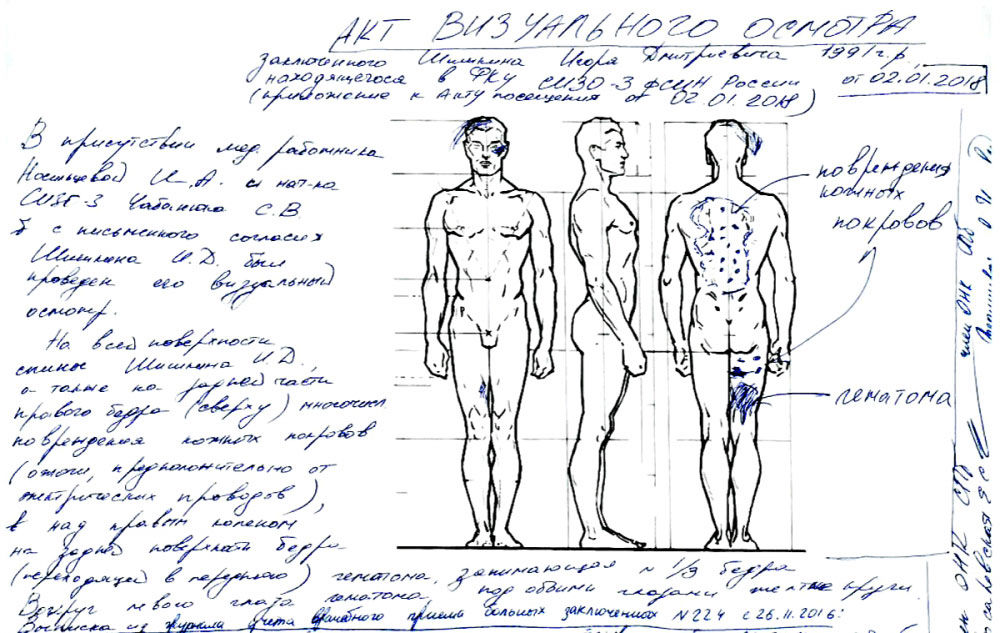 АКТ ВИЗУАЛЬНОГО ОСМОТРА
заключенного Шишкина Игоря Дмитриевича 1991 г.р.,
находящегося в ФКУ СИЗО-3 ФСИН России от 02.01.2018
(приложение к Акту посещения от 02.01.2018)
В присутствии мед. работника
И.А. и нач-ка
СИЗО-3 С.В.
с письменного согласия
Шишкина И.Д. был
проведен его визуальный
осмотр.
На всей поверхности
спины Шишкина И.Д.,
а также на задней части
правого бедра (сверху) многочисл.
повреждения кожных покровов
(ожоги, предположительно от
электрических проводов),
над правым коленом
на задней поверхности бедра
(переходящей в переднюю) гематома, занимающая ~ 1/3 бедра
Вокруг левого глаза гематома, под обоими глазами желтые круги.
Выписка из журнала учета врачебного приема больных заключенных N 224 с 26.11.2016:
повреждения
кожных
покровов
гематома
член ОНК СПб
ОНК СПб